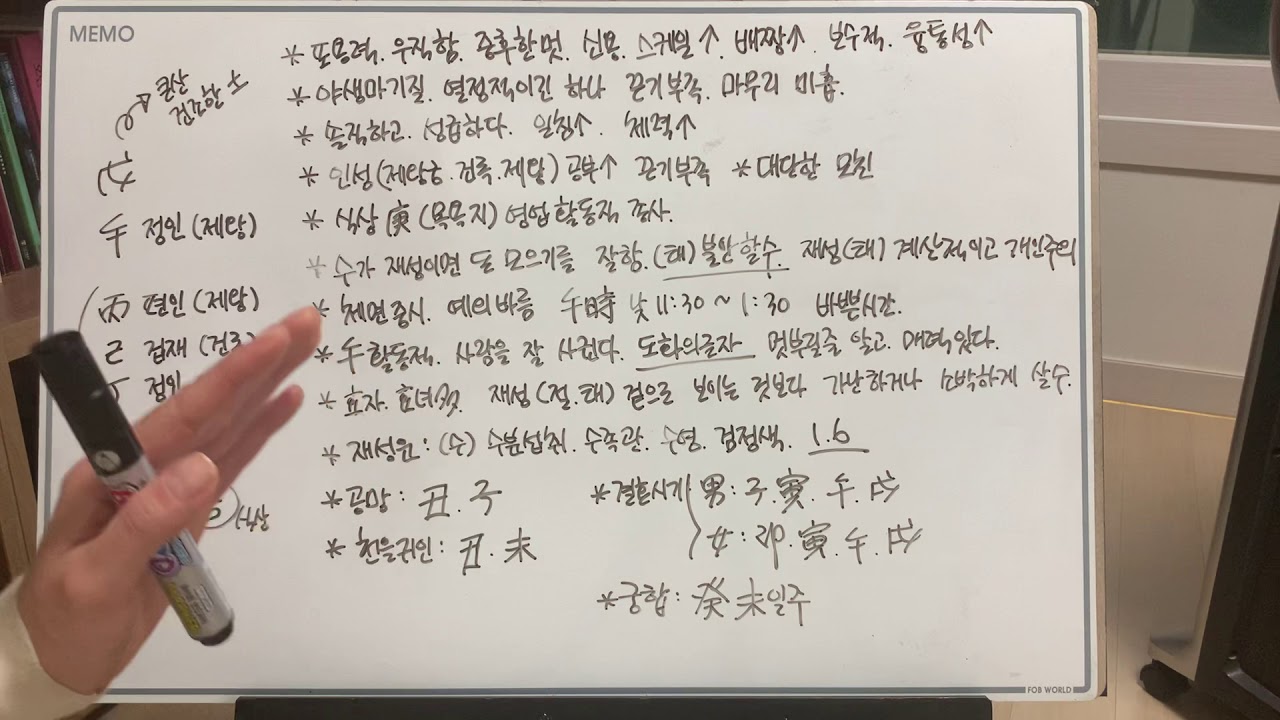 MEMO
큰산
건조한 土
戊
午 정인 (제왕)
丙 편인 (제왕)
己 겁재 (건록)
丁 정인
식상
* 포용력. 우직함. 중후한 멋. 신용. 스케일↑ 배짱↑. 보수적. 융통성↑
* 야생마기질. 열정적이긴 하나 끈기부족. 마무리 미흡.
* 솔직하고. 성급하다. 일침↑. 체력↑
* 인성 (제왕. 건록. 제왕) 공부↑ 끈기부족 * 대단한 모친
* 식상 庚 (목욕지) 영업 활동직 종사.
* 수가 재성이면 돈 모으기를 잘함. (태) 불안할수. 재성(태) 계산적이고 개인주의
* 체면중시. 예의바름 午時 낮 11:30 ~ 1:30 바쁜시간.
* 午 활동적. 사람을 잘 사귄다. 도화의글자 멋부릴줄 알고. 매력있다.
* 효자. 효녀多. 재성 (절.태) 겉으로 보이는 것보다 가난하거나 소박하게 살수.
* 재성운 : (수) 수분섭취. 수족관. 수영. 검정색. 1.6
* 공망 : 丑. 子
* 결혼시기 男 : 子. 寅. 午. 戌
* 천을귀인 : 丑. 未
女 : 卯. 寅. 午. 戌
* 궁합 : 癸未일주
FOB WORLD